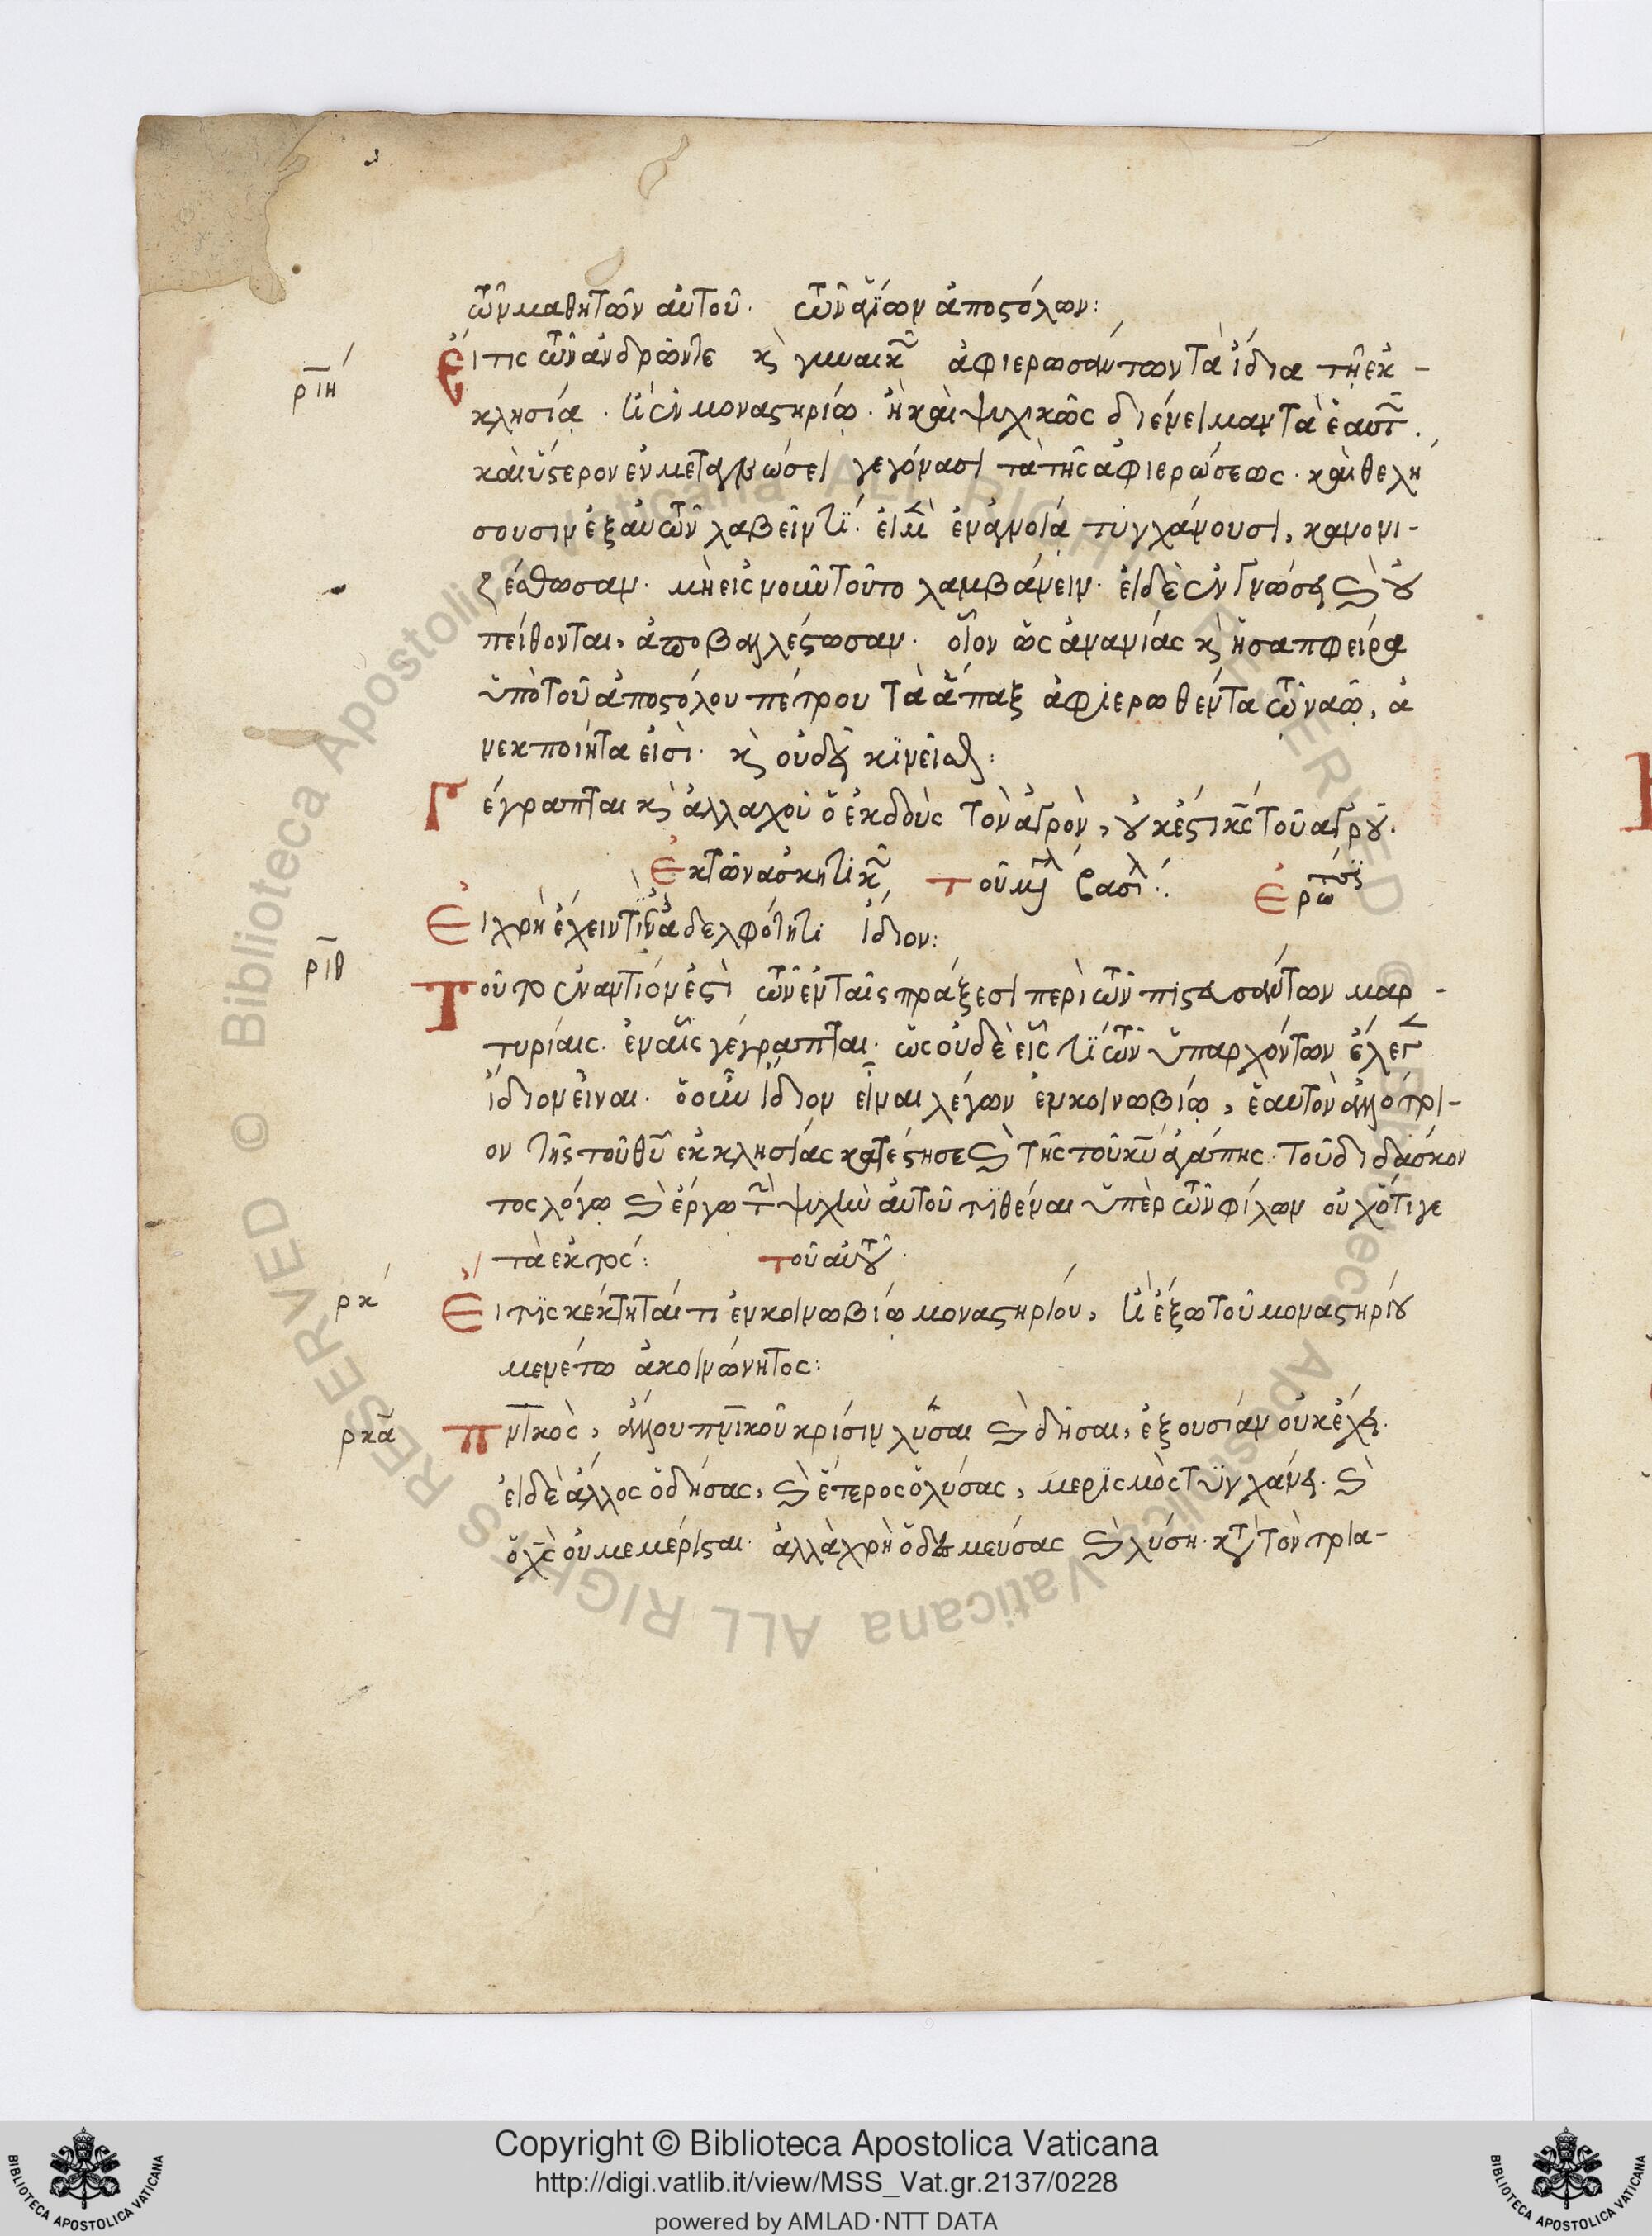 τῶν μαθητῶν αὐτοῦ. τῶν ἁγίων ἀποστόλων:
ριη
Εἴ τις τῶν ἀνδρῶν τε κ γυναικῶν ἀφιερωσάντων τὰ ἴδια τῇ ἐκ-
κλησίᾳ. ἢ ἐν μοναστηρίῳ. ἢ καὶ ψυχικῶς διένειμαν τὰ ἑαυτῶν.
καὶ ὕστερον ἐν μεταγνώσει γεγόνασι τὰ τῆς ἀφιερώσεως. καὶ θελή
σουσιν ἐξ αὐτῶν λαβεῖν τι. εἰ μὲν ἐν ἀνοίᾳ τυγχάνουσι, κανονι-
ζέσθωσαν. μὴ εἰς νοῦν τοῦτο λαμβάνειν. εἰ δὲ ἐν γνώσει κ οὐ
πείθονται, ἀποβαλλέσθωσαν. οἷον ὡς ἀνανίας κ ἡ σαπφείρα
ὑπὸ τοῦ ἀποστόλου πέτρου τὰ ἅπαξ ἀφιερωθέντα τῷ ναῷ, ἀ
νεκποίητα εἰσὶ. κ οὐδεὶς κινεῖται:
Γέγραπται κ ἀλλαχοῦ ὁ ἐκδοὺς τὸν ἀγρὸν, οὐκέτι κύριος τοῦ ἀγροῦ.
Ἐκ τῶν ἀσκητικῶν τοῦ μγ βασιλ: Ἐρώτησις
Εἰ χρὴ ἔχειν τι ἐν ἀδελφότητι ἴδιον:
ριθ
Τοῦτο ἐναντίον ἐστὶ τῶν ἐν ταῖς πράξεσι περὶ τῶν πιστευσάντων μαρ-
τυρίαις. ἐν αἷς γέγραπται. ὡς οὐδὲ εἷς τι τῶν ὑπαρχόντων ἔλεγεν
ἴδιον εἶναι. ὁ οὖν ἴδιον εἶναι λέγων ἐν κοινωβίῳ, ἑαυτὸν ἀλλότρι-
ον τῆς τοῦ θυ ἐκκλησίας κατέστησε κ τῆς τοῦ κυ ἀγάπης. τοῦ διδάσκον
τος λόγῳ κ ἔργῳ τὴν ψυχὴν αὐτοῦ τιθέναι ὑπὲρ τῶν φίλων οὐχ ὅτι γε
τὰ ἐκτός: τοῦ αὐτοῦ.
ρκ
Εἴ τις κέκτηταί τι ἐν κοινωβίῳ μοναστηρίου, ἢ ἔξω τοῦ μοναστηρίου
μενέτω ἀκοινώνητος:
ρκα
Πνικὸς, ἄλλου πνικοῦ κρίσιν λῦσαι κ δῆσαι, ἐξουσίαν οὐκ ἔχει.
εἰ δὲ ἄλλος ὁ δήσας, κ ἕτερος ὁ λύσας, μερισμὸς τυγχάνει. κ
ὁ χς οὐ μεμέρισται. ἀλλὰ χρὴ ὁ δεσμεύσας κ λύσῃ. κατὰ τὸν τρια-
Copyright © Biblioteca Apostolica Vaticana
http://digi.vatlib.it/view/MSS_Vat.gr.2137/0228
powered by AMLAD·NTT DATA